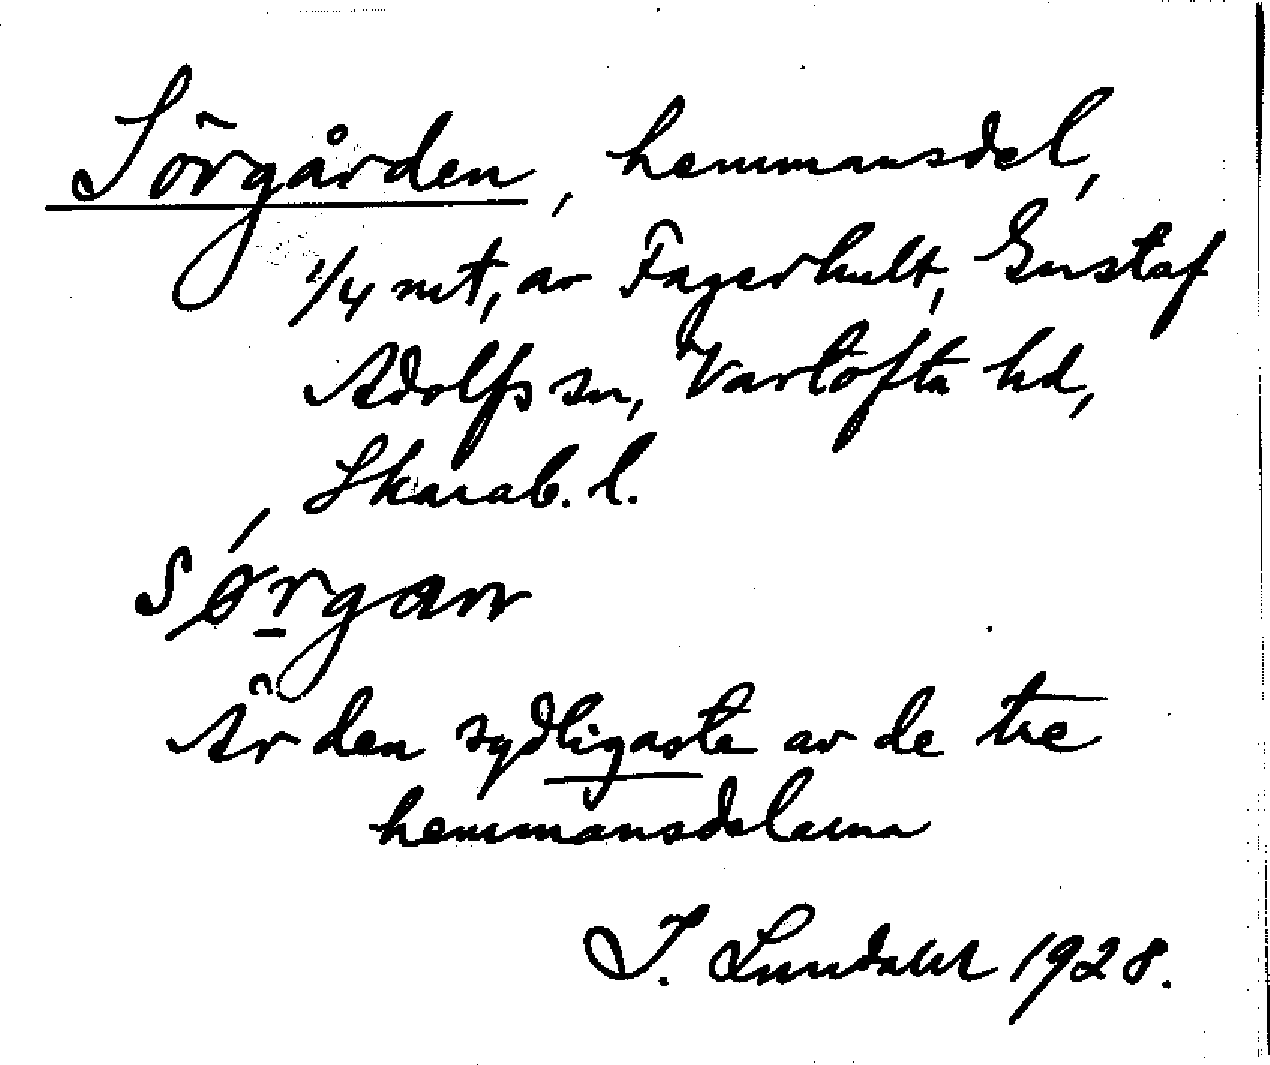 Sörgården, hemmansdel,
1/4 mt, av Fagerhult, Gustaf
Adolfs sn, Vartofta hd,
Skarab. l.
Sørgarn
Är den sydligaste av de tre
hemmansdelarna
I. Lundahl 1928.